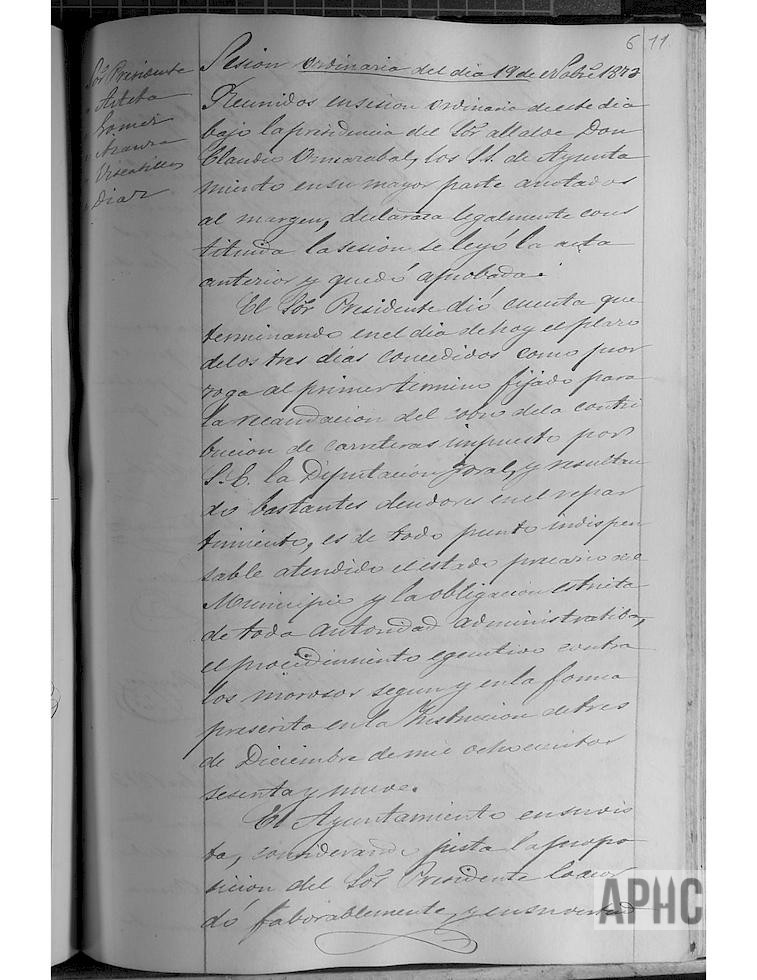 6 11.
Sor Presidente
Arteta
Gomez
Viscasillas
Diaz
Sesion ordinaria del dia 19 de 1873
Reunidos en sesion ordinaria de este dia
bajo la presidencia del Sor alcalde Don
Claudio los S.S. de Ayunta
miento en su mayor parte anotados
al margen, declarada legalmente cons
tituida la sesion se leyó la acta
anterior y quedó aprobada.
El Sor Presidente dió cuenta que
terminando en el dia de hoy el plazo
de los tres dias concedidos como pror
roga al primer termino fijado para
la recaudacion del cobro de la contri
bucion de carreteras impuesto por
S.E. la Diputacion foral, y resultan
do bastantes deudores en el repar
timiento, es de todo punto indispen
sable atendido el estado precario del
Municipio y la obligacion estricta
de toda autoridad administratiba,
el procedimiento egecutivo contra
los morosos segun y en la forma
prescrita en la Instruccion de tres
de Diciembre de mil ochocientos
sesenta y nueve.
El Ayuntamiento en su vis
ta, considerando justa la propo
sicion del Sor Presidente la acor
dó faborablemente, y en su virtud
APHC